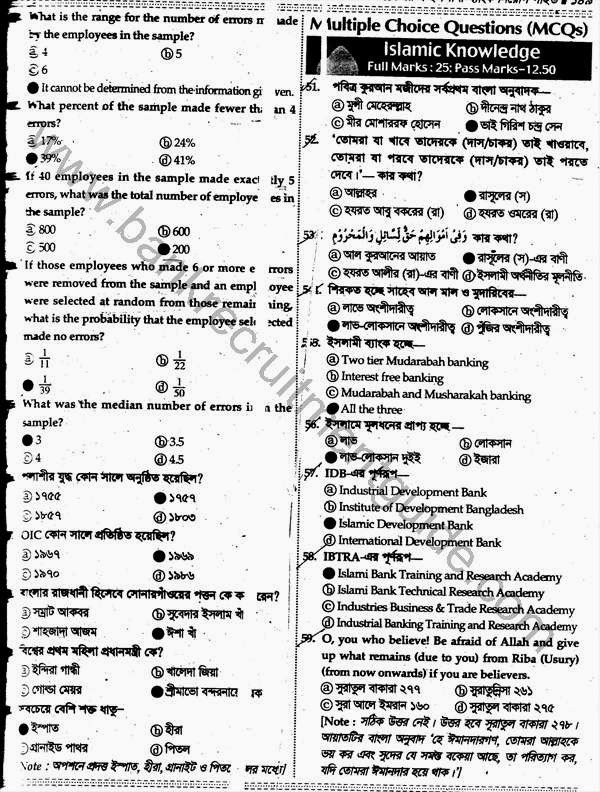 What is the range for the number of errors made
by the employees in the sample?
ⓐ 4 ⓑ 5
ⓒ 6
● It cannot be determined from the information given.
What percent of the sample made fewer than 4
errors?
ⓐ 17% ⓑ 24%
● 39% ⓓ 41%
If 40 employees in the sample made exactly 5
errors, what was the total number of employees in
the sample?
ⓐ 800 ⓑ 600
ⓒ 500 ● 200
If those employees who made 6 or more errors
were removed from the sample and an employee
were selected at random from those remaining,
what is the probability that the employee selected
made no errors?
ⓐ 1/11 ⓑ 1/22
● 1/39 ⓓ 1/50
What was the median number of errors in the
sample?
● 3 ⓑ 3.5
ⓒ 4 ⓓ 4.5
পলাশীর যুদ্ধ কোন সালে অনুষ্ঠিত হয়েছিল?
ⓐ ১৭৫৫ ● ১৭৫৭
ⓒ ১৮৫৭ ⓓ ১৮০৩
OIC কোন সালে প্রতিষ্ঠিত হয়েছিল?
ⓐ ১৯৬৭ ● ১৯৬৯
ⓒ ১৯৭০ ⓓ ১৯৮৬
বাংলার রাজধানী হিসেবে সোনারগাঁওয়ের পত্তন কে করেন?
ⓐ সম্রাট আকবর ⓑ সুবেদার ইসলাম খাঁ
ⓒ শাহজাদা আজম ● ঈশা খাঁ
বিশ্বের প্রথম মহিলা প্রধানমন্ত্রী কে?
ⓐ ইন্দিরা গান্ধী ⓑ খালেদা জিয়া
ⓒ গোল্ডা মেয়র ● শ্রীমাভো বন্দরনায়েক
সবচেয়ে বেশি শক্ত ধাতু–
● ইস্পাত ⓑ হীরা
ⓒ গ্রানাইড পাথর ⓓ পিতল
Note : অপশনে প্রদত্ত ইস্পাত, হীরা, গ্রানাইট ও পিতলের মধ্যে
Multiple Choice Questions (MCQs)
Islamic Knowledge
Full Marks : 25; Pass Marks–12.50
51. পবিত্র কুরআন মজীদের সর্বপ্রথম বাংলা অনুবাদক–
ⓐ মুন্সী মেহেরুল্লাহ ⓑ দীনেন্দ্র নাথ ঠাকুর
ⓒ মীর মোশাররফ হোসেন ● ভাই গিরিশ চন্দ্র সেন
52. 'তোমরা যা খাবে তাদেরকে (দাস/চাকর) তাই খাওয়াবে,
তোমরা যা পরবে তাদেরকে (দাস/চাকর) তাই পরতে
দেবে।'— কার কথা?
ⓐ আল্লাহর ● রাসূলের (স)
ⓒ হযরত আবু বকরের (রা) ⓓ হযরত ওমরের (রা)
53. وَفِىْ اَمْوَالِهِمْ حَقٌّ لِّلسَّائِلِ وَالْمَحْرُوْمِ কার কথা?
ⓐ আল কুরআনের আয়াত ● রাসূলের (স)-এর বাণী
ⓒ হযরত আলীর (রা)-এর বাণী ⓓ ইসলামী অর্থনীতির মূলনীতি
54. শিরকত হচ্ছে সাহেব আল মাল ও মুদারিবের—
ⓐ লাভে অংশীদারীত্ব ⓑ লোকসানে অংশীদারীত্ব
● লাভ-লোকসানে অংশীদারীত্ব ⓓ পুঁজির অংশীদারীত্ব
ইসলামী ব্যাংক হচ্ছে—
ⓐ Two tier Mudarabah banking
ⓑ Interest free banking
ⓒ Mudarabah and Musharakah banking
● All the three
56. ইসলামে মূলধনের প্রাপ্য হচ্ছে —
ⓐ লাভ ⓑ লোকসান
● লাভ-লোকসান দুইই ⓓ ইজারা
57. IDB-এর পূর্ণরূপ—
ⓐ Industrial Development Bank
ⓑ Institute of Development Bangladesh
● Islamic Development Bank
ⓓ International Development Bank
58. IBTRA-এর পূর্ণরূপ—
● Islami Bank Training and Research Academy
ⓑ Islami Bank Technical Research Academy
ⓒ Industries Business & Trade Research Academy
ⓓ Industrial Banking Training and Research Academy
59. O, you who believe! Be afraid of Allah and give
up what remains (due to you) from Riba (Usury)
(from now onwards) if you are believers.
ⓐ সূরাতুল বাকারা ২৭৭ ⓑ সূরাতুন্নিসা ২৬১
ⓒ সূরা আলে ইমরান ১৬০ ⓓ সূরাতুল বাকারা ২৭৫
[Note : সঠিক উত্তর নেই। উত্তর হবে সূরাতুল বাকারা ২৭৮।
আয়াতটির বাংলা অনুবাদ 'হে ঈমানদারগণ, তোমরা আল্লাহকে
ভয় কর এবং সুদের যে সমস্ত বকেয়া আছে, তা পরিত্যাগ কর,
যদি তোমরা ঈমানদার হয়ে থাক।']
www.bankrecruitmentguide.com